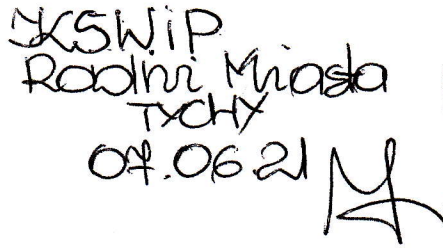 KSWiP
Radni Miasta
TYCHY
07.06.21